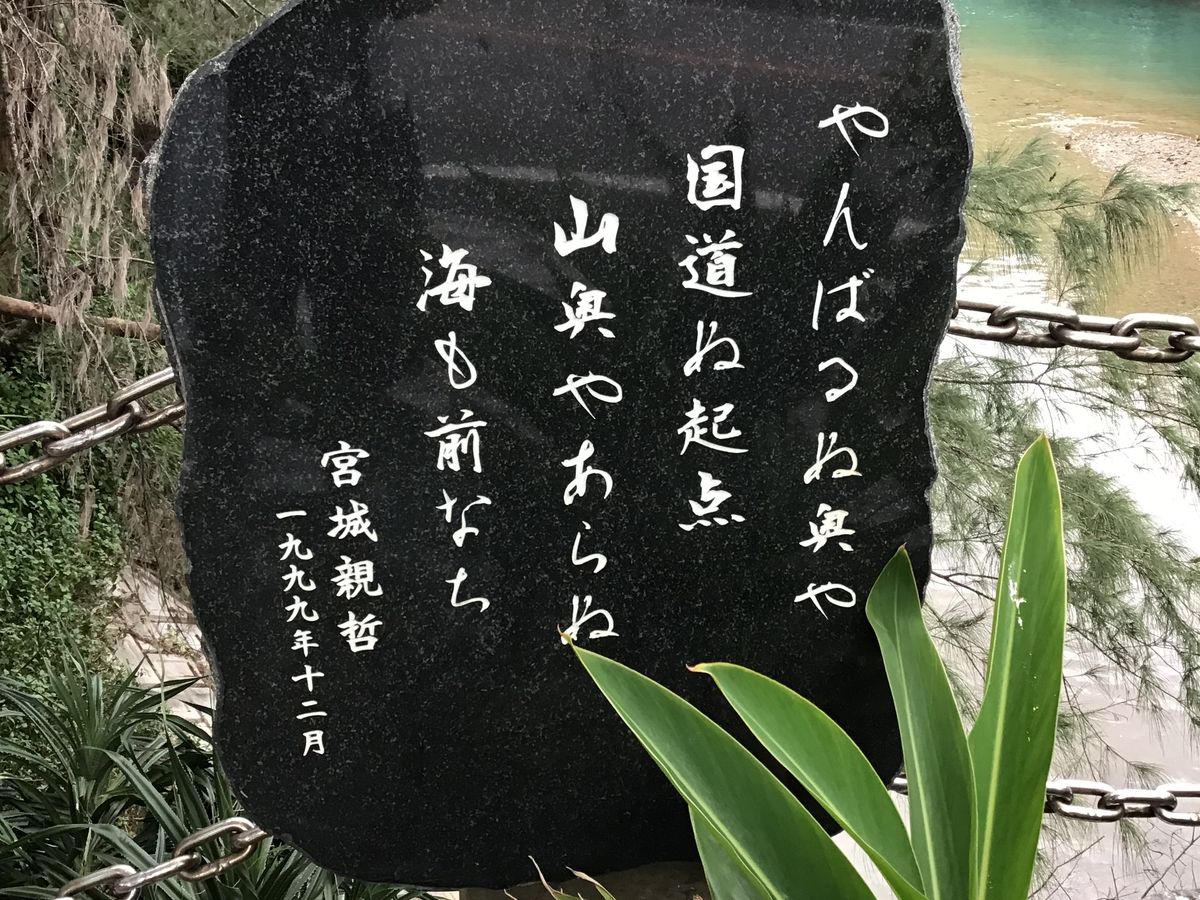 やんばるぬ奥や
国道ぬ起点
山奥やあらぬ
海も前なち
宮城親哲
一九九九年十二月